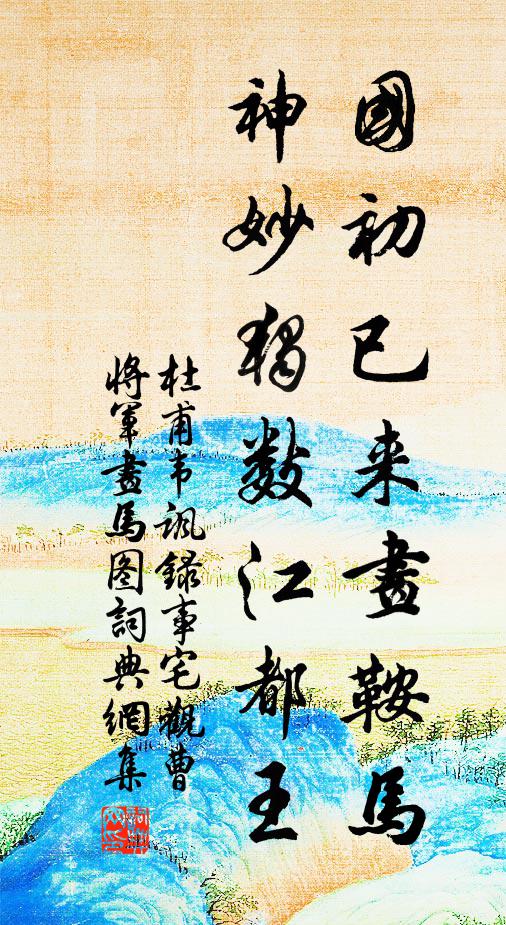 國初已来畫鞍馬
神妙獨數江都王
杜甫韦諷録事宅觀曹
將軍畫馬图詞典網集